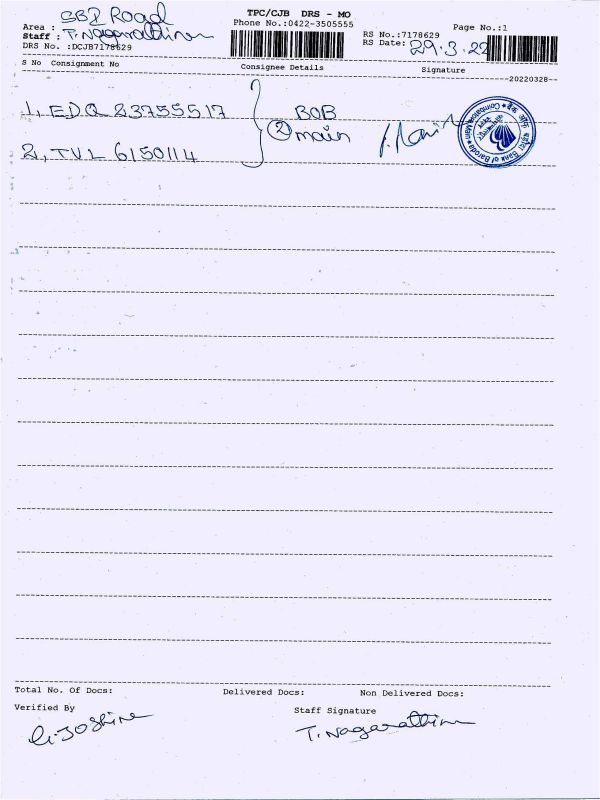 TPC/CJB DRS - MO
Phone No.:0422-3505555
Page No.:1
Area : SBI Road
Staff : T. Nagarathinam
DRS No. :DCJB7178629
RS No.:7178629
RS Date: 29.3.22
S No Consignment No Consignee Details Signature
--20220328--
1, EDQ 23755517
2, TVL 6150114
② BOB
main
Bank of Baroda
Total No. Of Docs: Delivered Docs: Non Delivered Docs:
Verified By Staff Signature
G. Joshine T. Nagarathinam